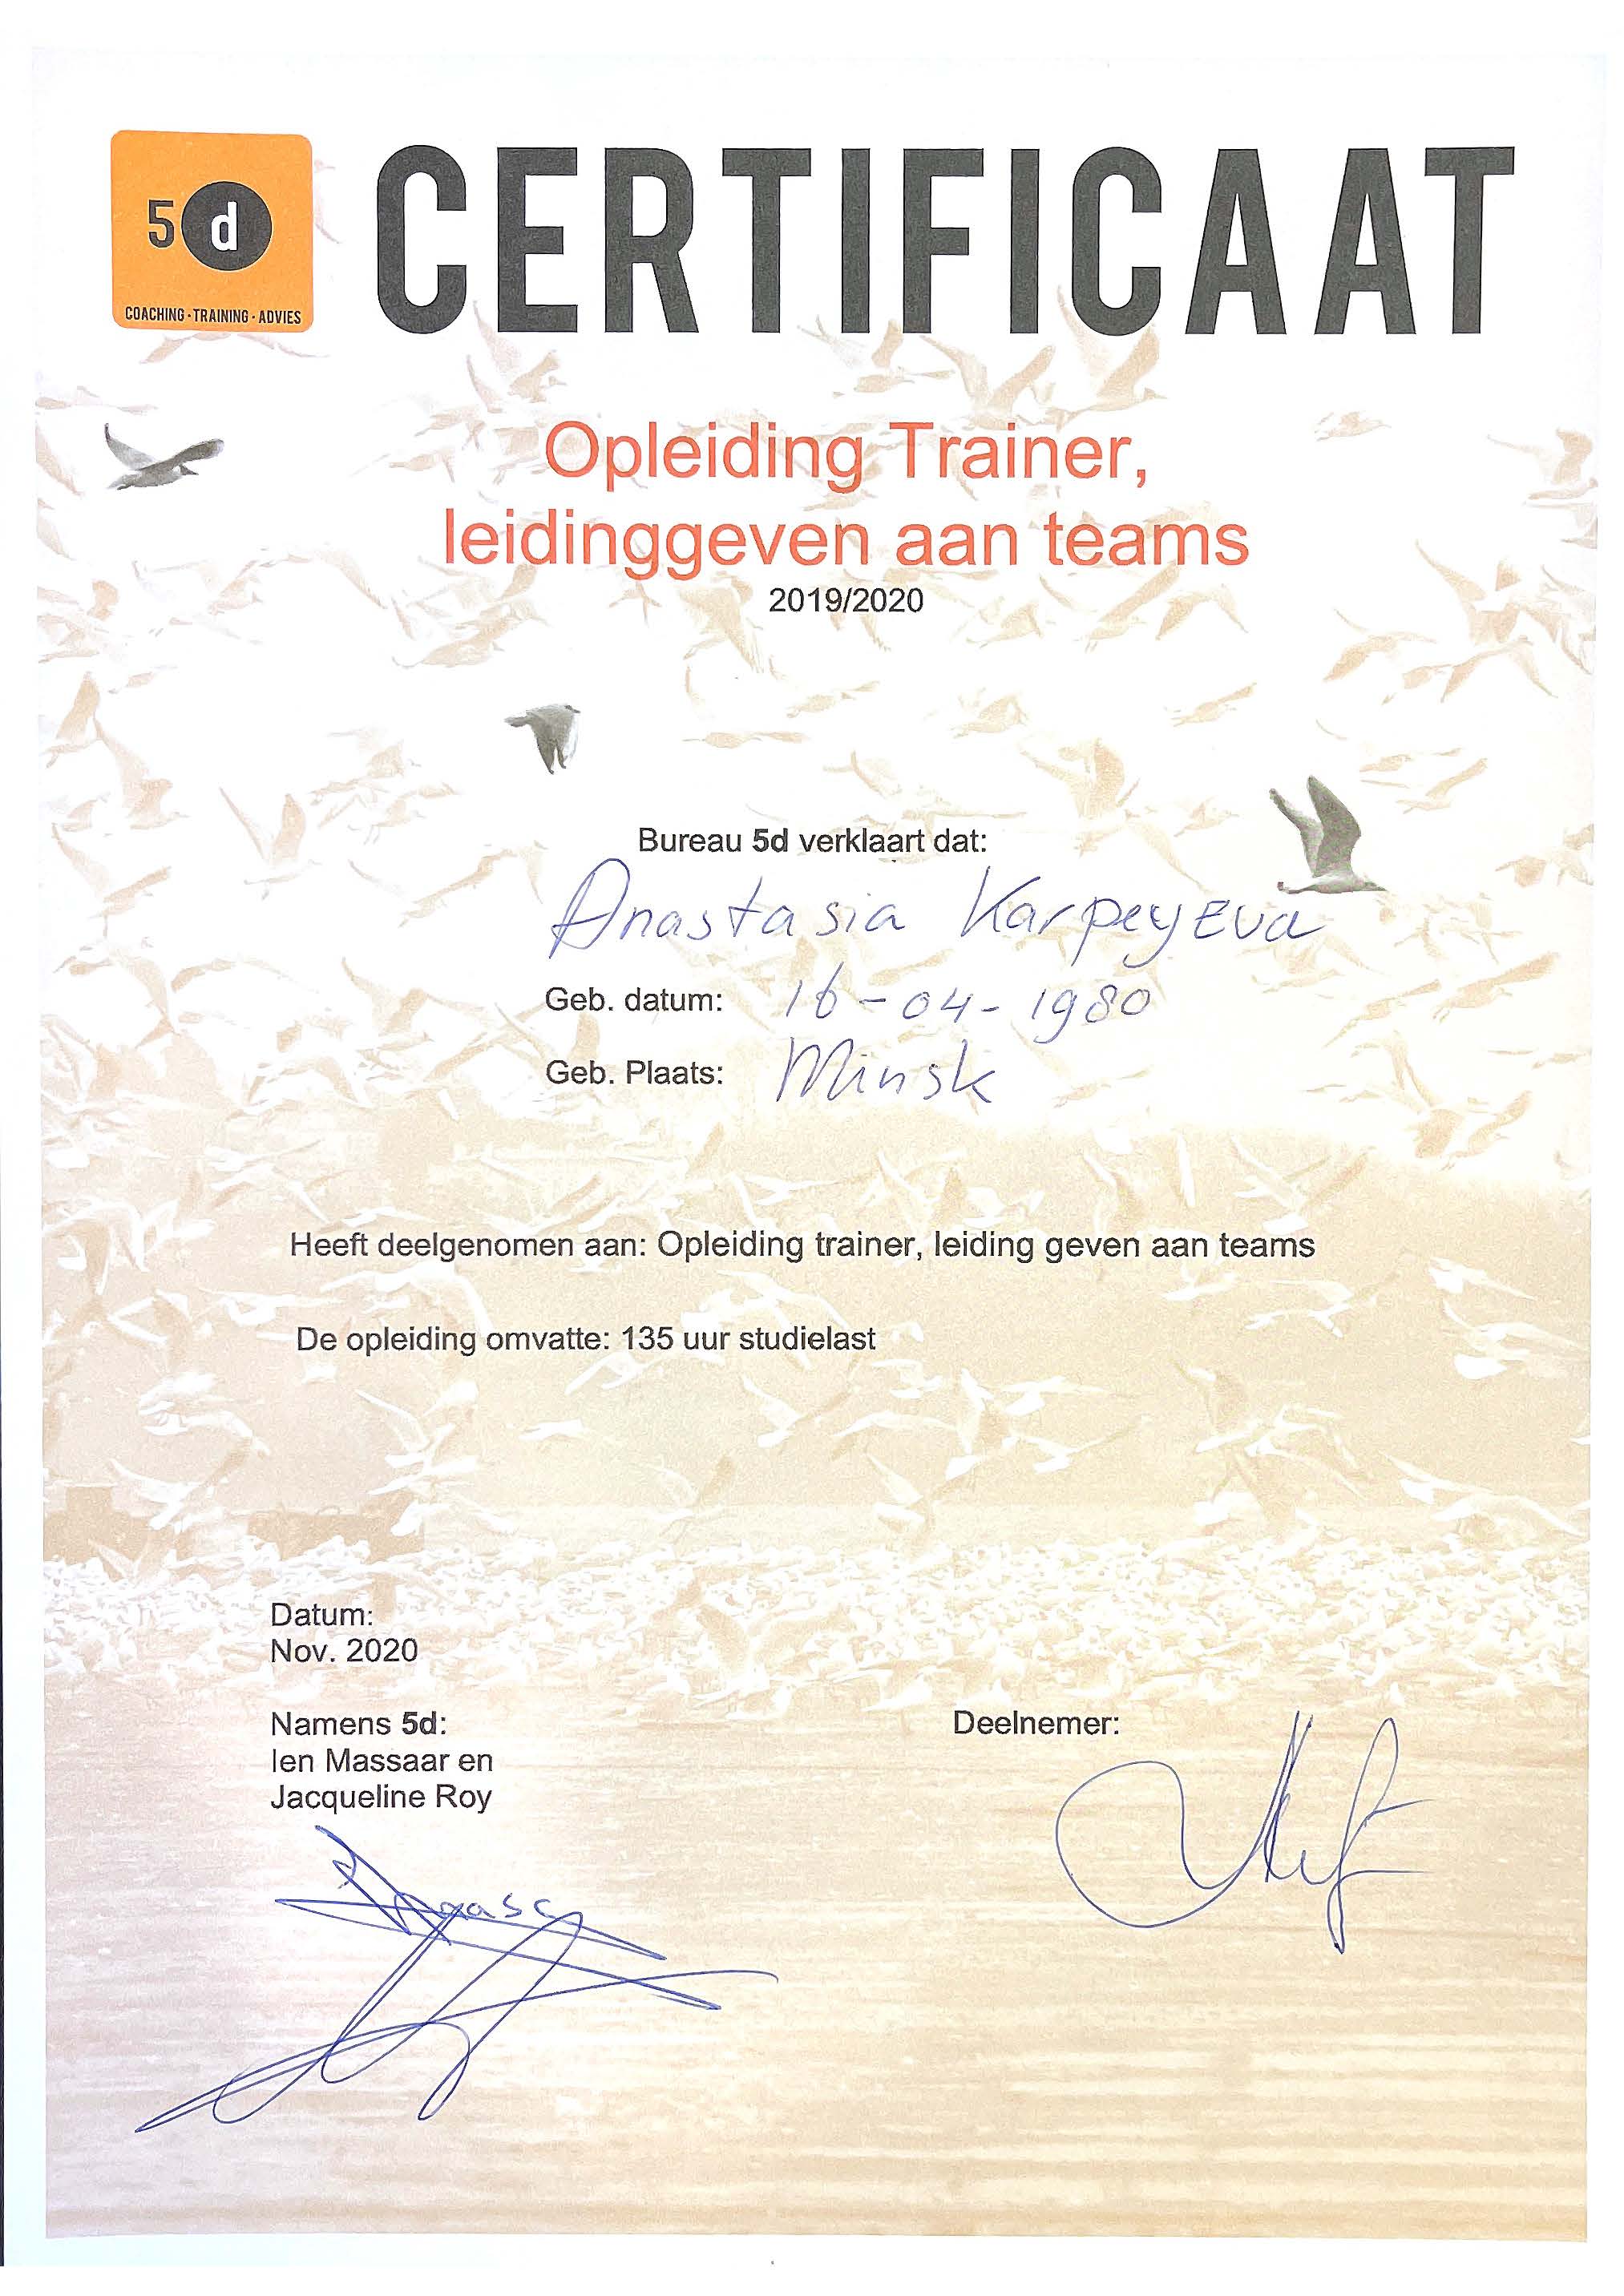 5d
COACHING · TRAINING · ADVIES
CERTIFICAAT
Opleiding Trainer,
leidinggeven aan teams
2019/2020
Bureau 5d verklaart dat:
Anastasia Karpeyeva
Geb. datum: 16-04-1980
Geb. Plaats: Minsk
Heeft deelgenomen aan: Opleiding trainer, leiding geven aan teams
De opleiding omvatte: 135 uur studielast
Datum:
Nov. 2020
Namens 5d:
Ien Massaar en
Jacqueline Roy
Deelnemer: